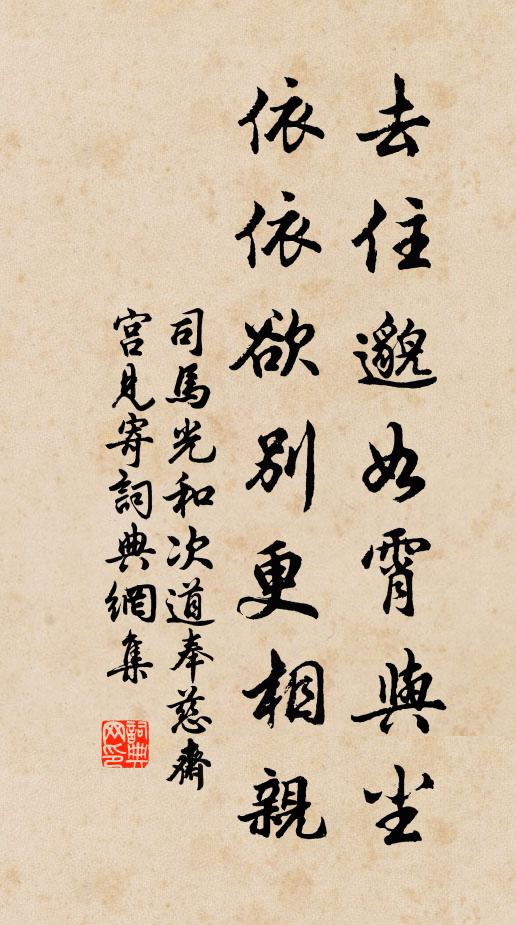 去住邈如霄與尘
依依欲別更相親
司馬光和次道奉慈齋
宮見寄詞典網集
詞典
网印